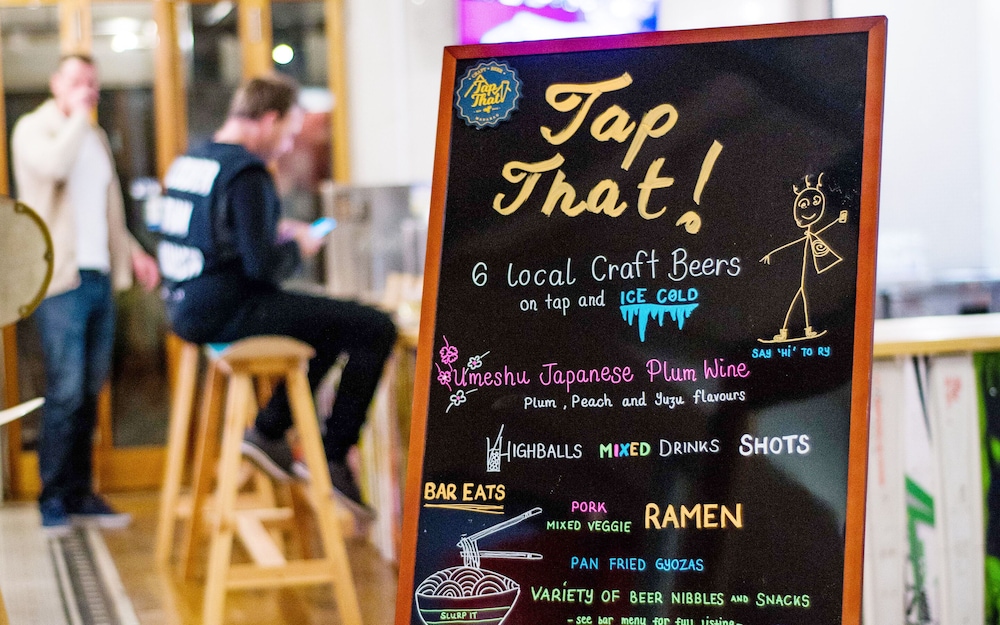 CRAFT BEER
Tap
That
Tap
That!
6 local Craft Beers
on tap and ICE COLD
SAY 'HI' TO RY
Umeshu Japanese Plum Wine
Plum, Peach and Yuzu flavours
HIGHBALLS MIXED DRINKS SHOTS
BAR EATS
PORK
MIXED VEGGIE RAMEN
PAN FRIED GYOZAS
VARIETY OF BEER NIBBLES AND SNACKS
SLURP IT
- see bar menu for full listing -